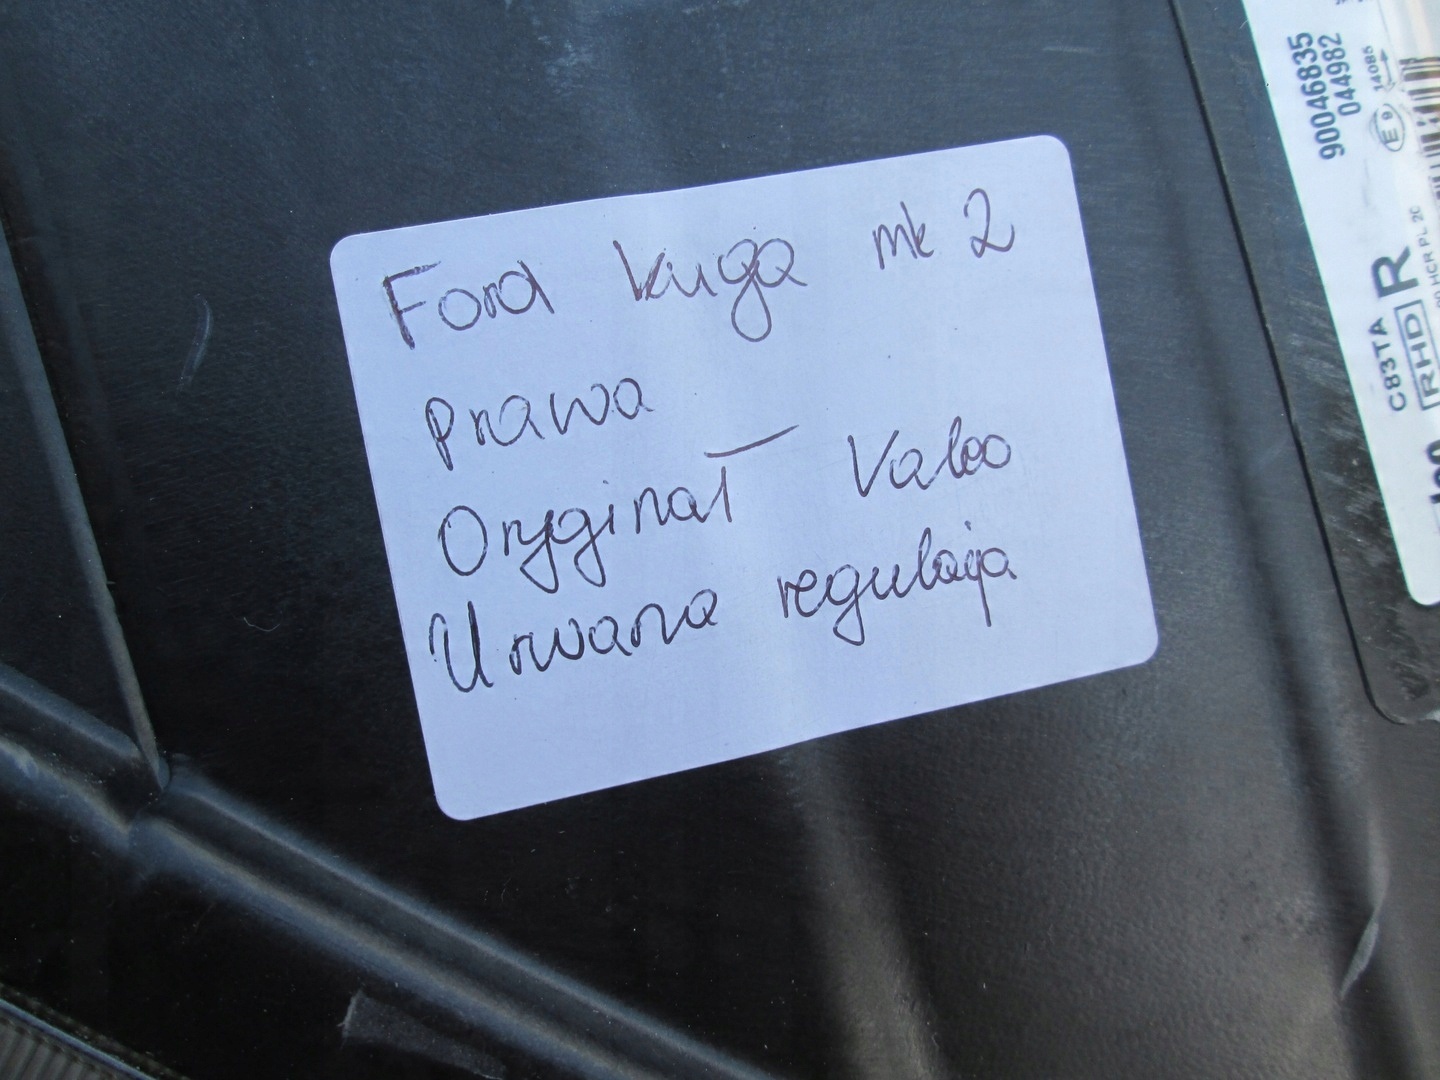 Ford kuga mk 2
Prawa
Oryginał Valeo
Urwana regulacja
90046835
044982
E9 14085
C83TA
RHD R
00 HCR PL 2C